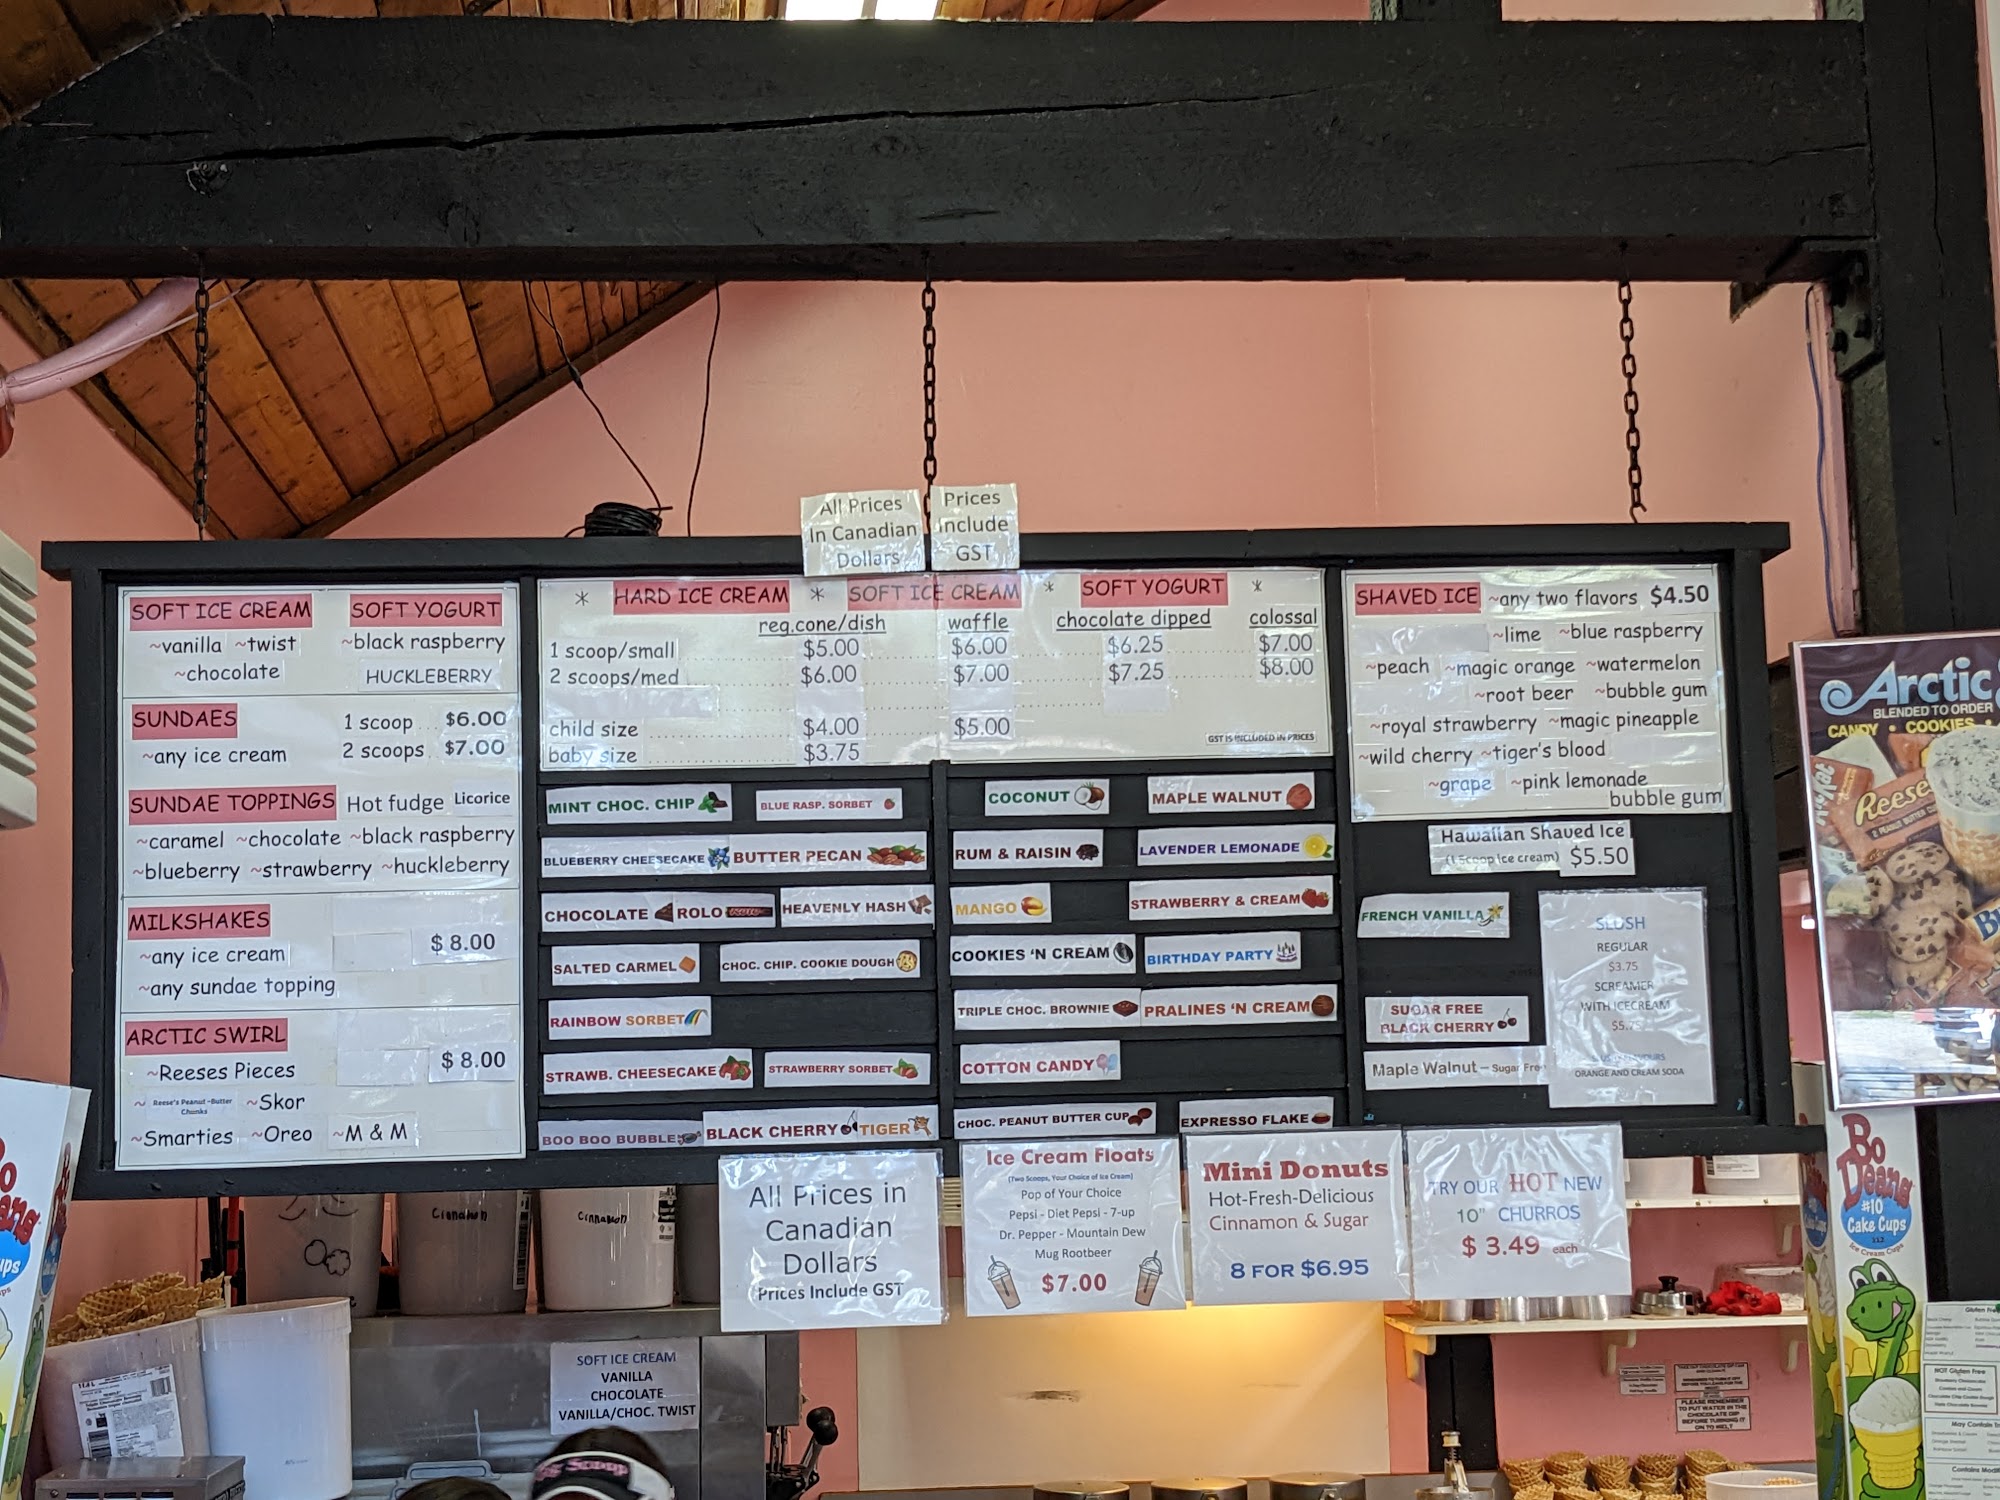 All Prices
In Canadian
Dollars
Prices
Include
GST
SOFT ICE CREAM SOFT YOGURT
~vanilla ~twist ~black raspberry
~chocolate HUCKLEBERRY
SUNDAES 1 scoop $6.00
~any ice cream 2 scoops $7.00
SUNDAE TOPPINGS Hot fudge Licorice
~caramel ~chocolate ~black raspberry
~blueberry ~strawberry ~huckleberry
MILKSHAKES
~any ice cream $8.00
~any sundae topping
ARCTIC SWIRL $8.00
~Reeses Pieces
~ Reese's Peanut-Butter Chunks ~Skor
~Smarties ~Oreo ~M & M
* HARD ICE CREAM * SOFT ICE CREAM * SOFT YOGURT *
reg.cone/dish waffle chocolate dipped colossal
1 scoop/small $5.00 $6.00 $6.25 $7.00
2 scoops/med $6.00 $7.00 $7.25 $8.00
child size $4.00 $5.00
baby size $3.75
GST IS INCLUDED IN PRICES
MINT CHOC. CHIP BLUE RASP. SORBET
BLUEBERRY CHEESECAKE BUTTER PECAN
CHOCOLATE ROLO HEAVENLY HASH
SALTED CARMEL CHOC. CHIP. COOKIE DOUGH
RAINBOW SORBET
STRAWB. CHEESECAKE STRAWBERRY SORBET
BOO BOO BUBBLE BLACK CHERRY TIGER
COCONUT MAPLE WALNUT
RUM & RAISIN LAVENDER LEMONADE
MANGO STRAWBERRY & CREAM
COOKIES 'N CREAM BIRTHDAY PARTY
TRIPLE CHOC. BROWNIE PRALINES 'N CREAM
COTTON CANDY
CHOC. PEANUT BUTTER CUP EXPRESSO FLAKE
SHAVED ICE ~any two flavors $4.50
~lime ~blue raspberry
~peach ~magic orange ~watermelon
~root beer ~bubble gum
~royal strawberry ~magic pineapple
~wild cherry ~tiger's blood
~grape ~pink lemonade
bubble gum
Hawaiian Shaved Ice
(1 Scoop ice cream) $5.50
FRENCH VANILLA
SUGAR FREE
BLACK CHERRY
Maple Walnut – Sugar Free
SLUSH
REGULAR
$3.75
SCREAMER
WITH ICECREAM
ORANGE AND CREAM SODA
All Prices in
Canadian
Dollars
Prices Include GST
Ice Cream Floats
(Two Scoops, Your Choice of Ice Cream)
Pop of Your Choice
Pepsi - Diet Pepsi - 7-up
Dr. Pepper - Mountain Dew
Mug Rootbeer
$7.00
Mini Donuts
Hot-Fresh-Delicious
Cinnamon & Sugar
8 FOR $6.95
TRY OUR HOT NEW
10" CHURROS
$ 3.49 each
Arctic
BLENDED TO ORDER
CANDY • COOKIES •
Reese
Bo
Deans
#10
Cake Cups
Ice Cream Cups
Cinnamon
Cinnamon
SOFT ICE CREAM
VANILLA
CHOCOLATE
VANILLA/CHOC. TWIST
PLEASE REMEMBER
TO PUT WATER IN THE
CHOCOLATE DIP
BEFORE TURNING IT
ON TO MELT
NOT Gluten Free